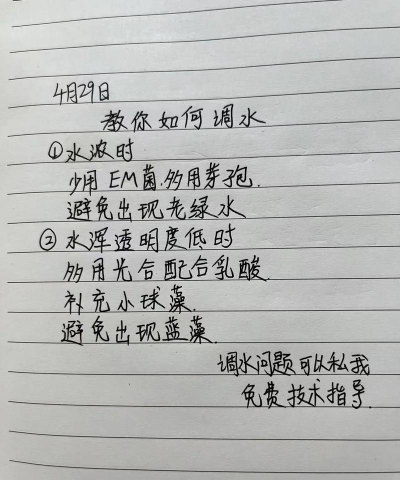 4月29日
教你如何调水
①水浓时
少用EM菌.多用芽孢.
避免出现老绿水
②水浑透明度低时
多用光合配合乳酸.
补充小球藻.
避免出现蓝藻.
调水问题可以私我
免费技术指导.